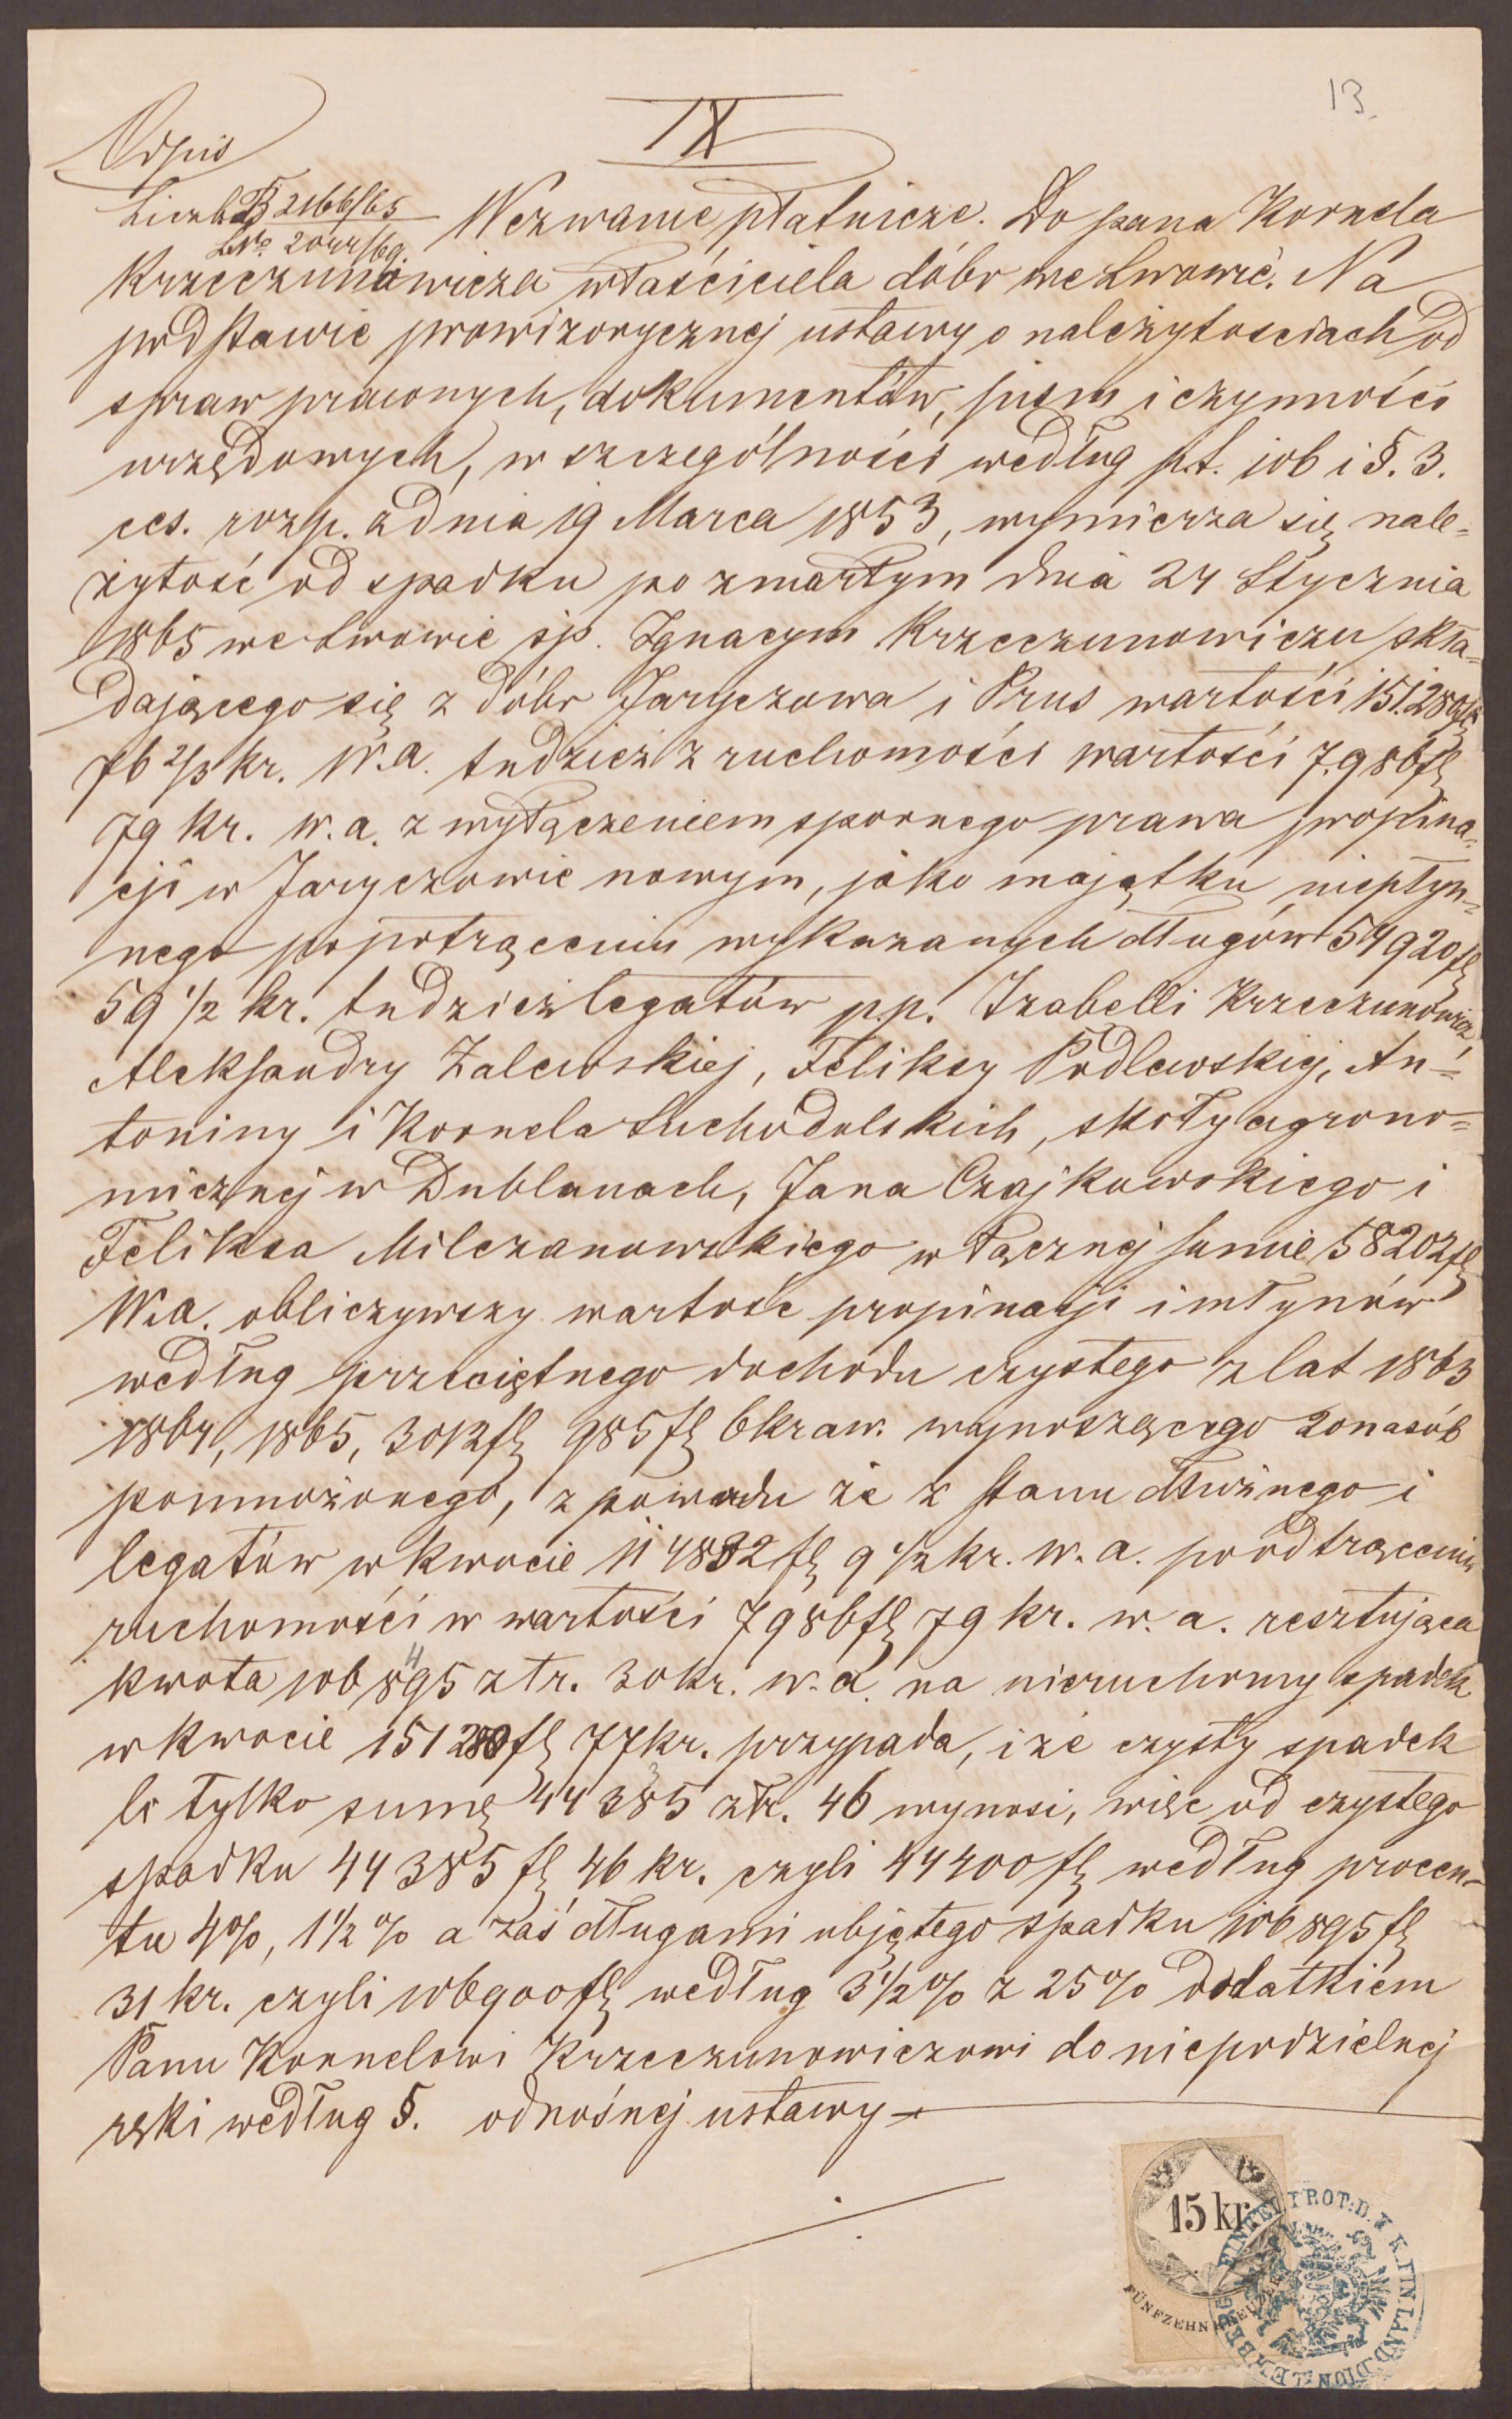 13.
IX
Odpis
Liczba B 2166/65
Wezwanie płatnicze. Do pana Kornela
Krzeczunowicza właściciela dóbr we Lwowie. Na
podstawie prowizorycznej ustawy o należytosciach od
spraw prawnych, dokumentów, pism i czynności
urzędowych, w szczególności według p.t. 106 i §. 3.
ces. rozp. z dnia 19 Marca 1853, wymierza się nale=
żytość od spadku po zmarłym dnia 24 Stycznia
1865 we Lwowie śp. Ignacym Krzeczunowiczu skła=
dającego się z dóbr Jaryczowa i Prus wartości 151.280 fl
76 2/3 kr. w.a. tudzież z ruchomości wartości 7.986 fl
79 kr. w.a. z wyłączeniem spornego prawa propina=
cji w Jaryczowie nowym, jako majątku niepłyn=
nego po potrąceniu wykazanych długów 54920 fl
59 1/2 kr. tudzież legatów pp. Izabelli Krzeczunowicz
Aleksandry Zalewskiej, Feliksy Podlewskiej, An=
toniny i Kornela Suchodolskich, skoły agrono=
micznej w Dublanach, Jana Czajkowskiego i
Feliksa Milczanowskiego w łącznej sumie 58202 fl
W.a. obliczywszy wartość propinacji i młynów
według przeciętnego dochodu czystego z lat 1863
1864, 1865, 3012 fl 985 fl 6 kr aw. wynoszącego 20 nasób
pomnożonego, z powodu że z stanu dłużnego i
legatów w kwocie 114882 fl 9 1/2 kr. w.a. po odtrąceniu
ruchomości w wartości 7986 fl 79 kr. w.a. resztująca
kwota 106895 złr. 30 kr. w.a. na nieruchomy spadek
w kwocie 151280 fl 77 kr. przypada, i że czysty spadek
li tylko sumę 44385 złr. 46 wynosi, więc od czystego
spadku 44385 fl 46 kr. czyli 44400 fl według procen=
tu 4%, 1 1/2 % a zaś długami objętego spadku 106895 fl
31 kr. czyli 106900 fl według 3 1/2 % z 25% dodatkiem
Panu Kornelowi Krzeczunowiczowi do niepodzielnej
ręki według §. odnośnej ustawy
15 kr
FÜNFZEHN KREUZER